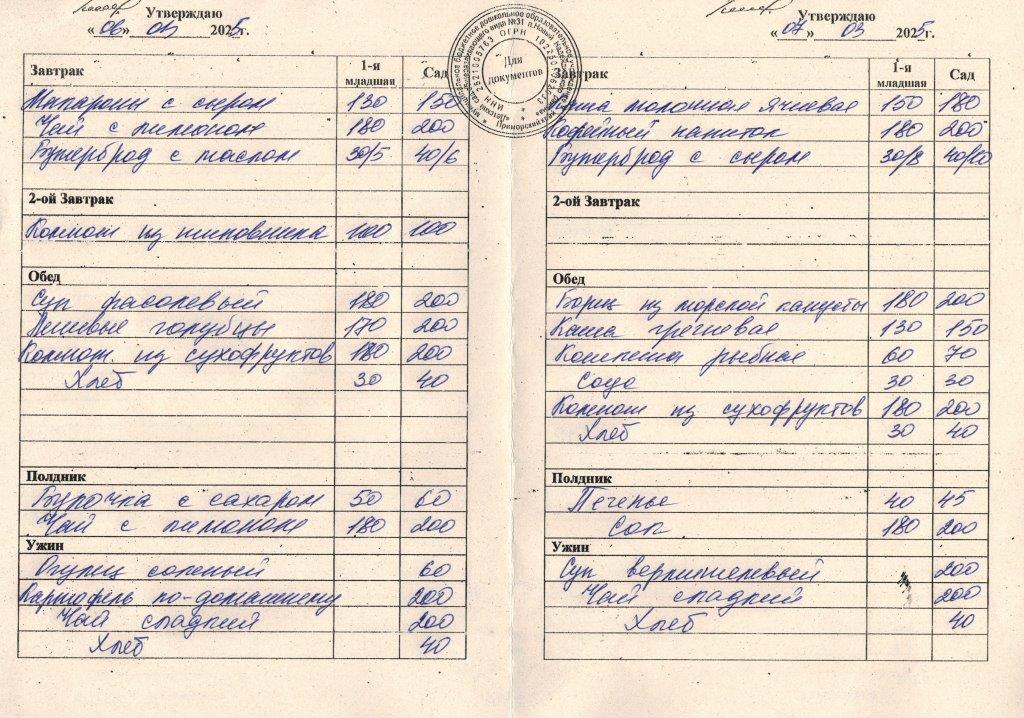 Утверждаю
«06» 03 2025г.
Завтрак 1-я младшая Сад
Макароны с сыром 130 150
Чай с лимоном 180 200
Бутерброд с маслом 30/5 40/6
2-ой Завтрак
Компот из шиповника 100 100
Обед
Суп фасолевый 180 200
Ленивые голубцы 170 200
Компот из сухофруктов 180 200
Хлеб 30 40
Полдник
Булочка с сахаром 50 60
Чай с лимоном 180 200
Ужин
Огурец соленый 60
Картофель по-домашнему 200
Чай сладкий 200
Хлеб 40
Для
документов
Утверждаю
«07» 03 2025г.
Завтрак 1-я младшая Сад
Каша молочная ячневая 150 180
Кофейный напиток 180 200
Бутерброд с сыром 30/8 40/10
2-ой Завтрак
Обед
Борщ из морской капусты 180 200
Каша гречневая 130 150
Котлета рыбная 60 70
Соус 30 30
Компот из сухофруктов 180 200
Хлеб 30 40
Полдник
Печенье 40 45
Сок 180 200
Ужин
Суп вермишелевый 200
Чай сладкий 200
Хлеб 40